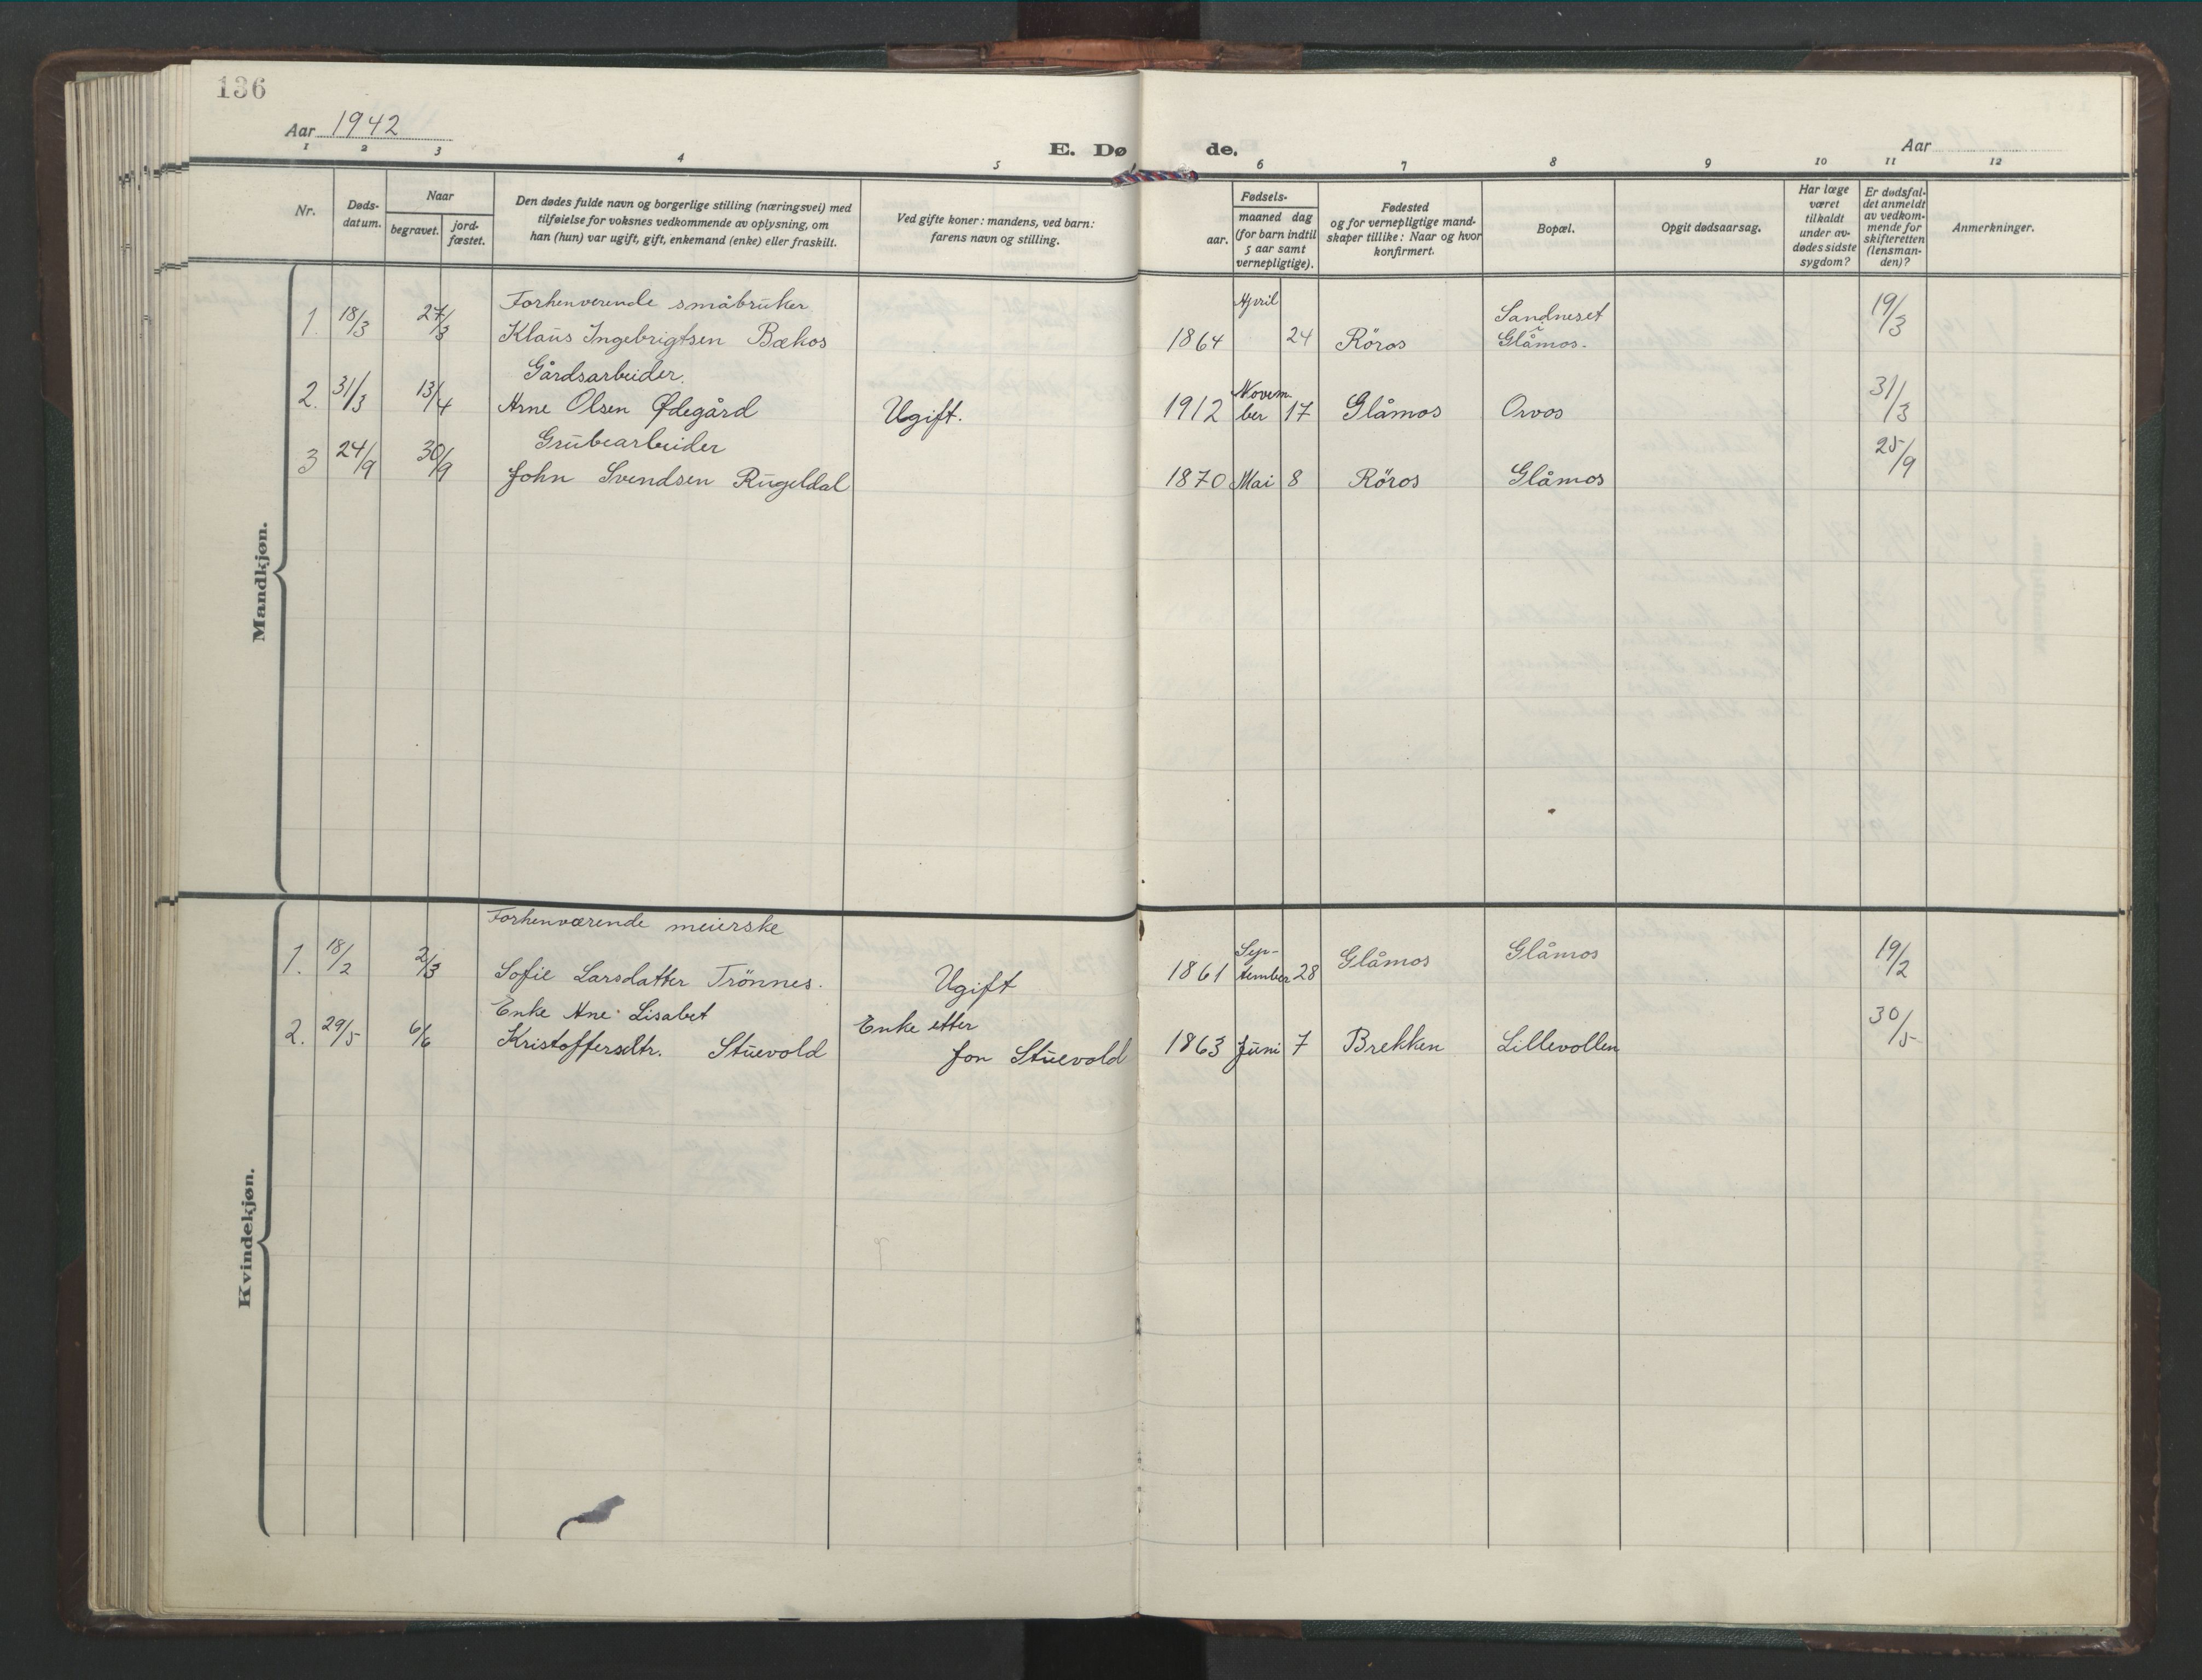 136
Aar 1942
E. Dø
de.
Aar
1 2 3 4 5 6 7 8 9 10 11 12
Nr.
Døds-
datum.
Naar
begravet.
jord-
fæstet.
Den dødes fulde navn og borgerlige stilling (næringsvei) med
tilføielse for voksnes vedkommende av oplysning, om
han (hun) var ugift, gift, enkemand (enke) eller fraskilt.
Ved gifte koner: mandens, ved barn:
farens navn og stilling.
Fødsels-
aar.
maaned dag
(for barn indtil
5 aar samt
vernepligtige).
Fødested
og for vernepligtige mand-
skaper tillike: Naar og hvor
konfirmert.
Bopæl.
Opgit dødsaarsag.
Har læge
været
tilkaldt
under av-
dødes sidste
sygdom?
Er dødsfal-
det anmeldt
av vedkom-
mende for
skifteretten
(lensman-
den)?
Anmerkninger.
Mandkjøn.
Forhenverende småbruker April Sandneset
1. 18/3 27/3 Klaus Ingebrigtsen Bækos 1864 24 Röros i Glåmos. 19/3
Gårdsarbeider. Novem-
2. 31/3 13/4 Arne Olsen Ødegård Ugift. 1912 ber 17 Glåmos Orvos 31/3
Grubearbeider
3 24/9 30/9 John Svendsen Rugeldal 1870 Mai 8 Röros Glåmos 25/9
Kvindekjøn.
Forhenværende meierske Sep-
1. 18/2 2/3 Sofie Larsdatter Trönnes. Ugift 1861 tember 28 Glåmos Glåmos 19/2
Enke Ane Lisabet Enke etter
2. 29/5 6/6 Kristoffersdtr. Stuevold Jon Stuevold 1863 Juni 7 Brekken Lillevollen 30/5